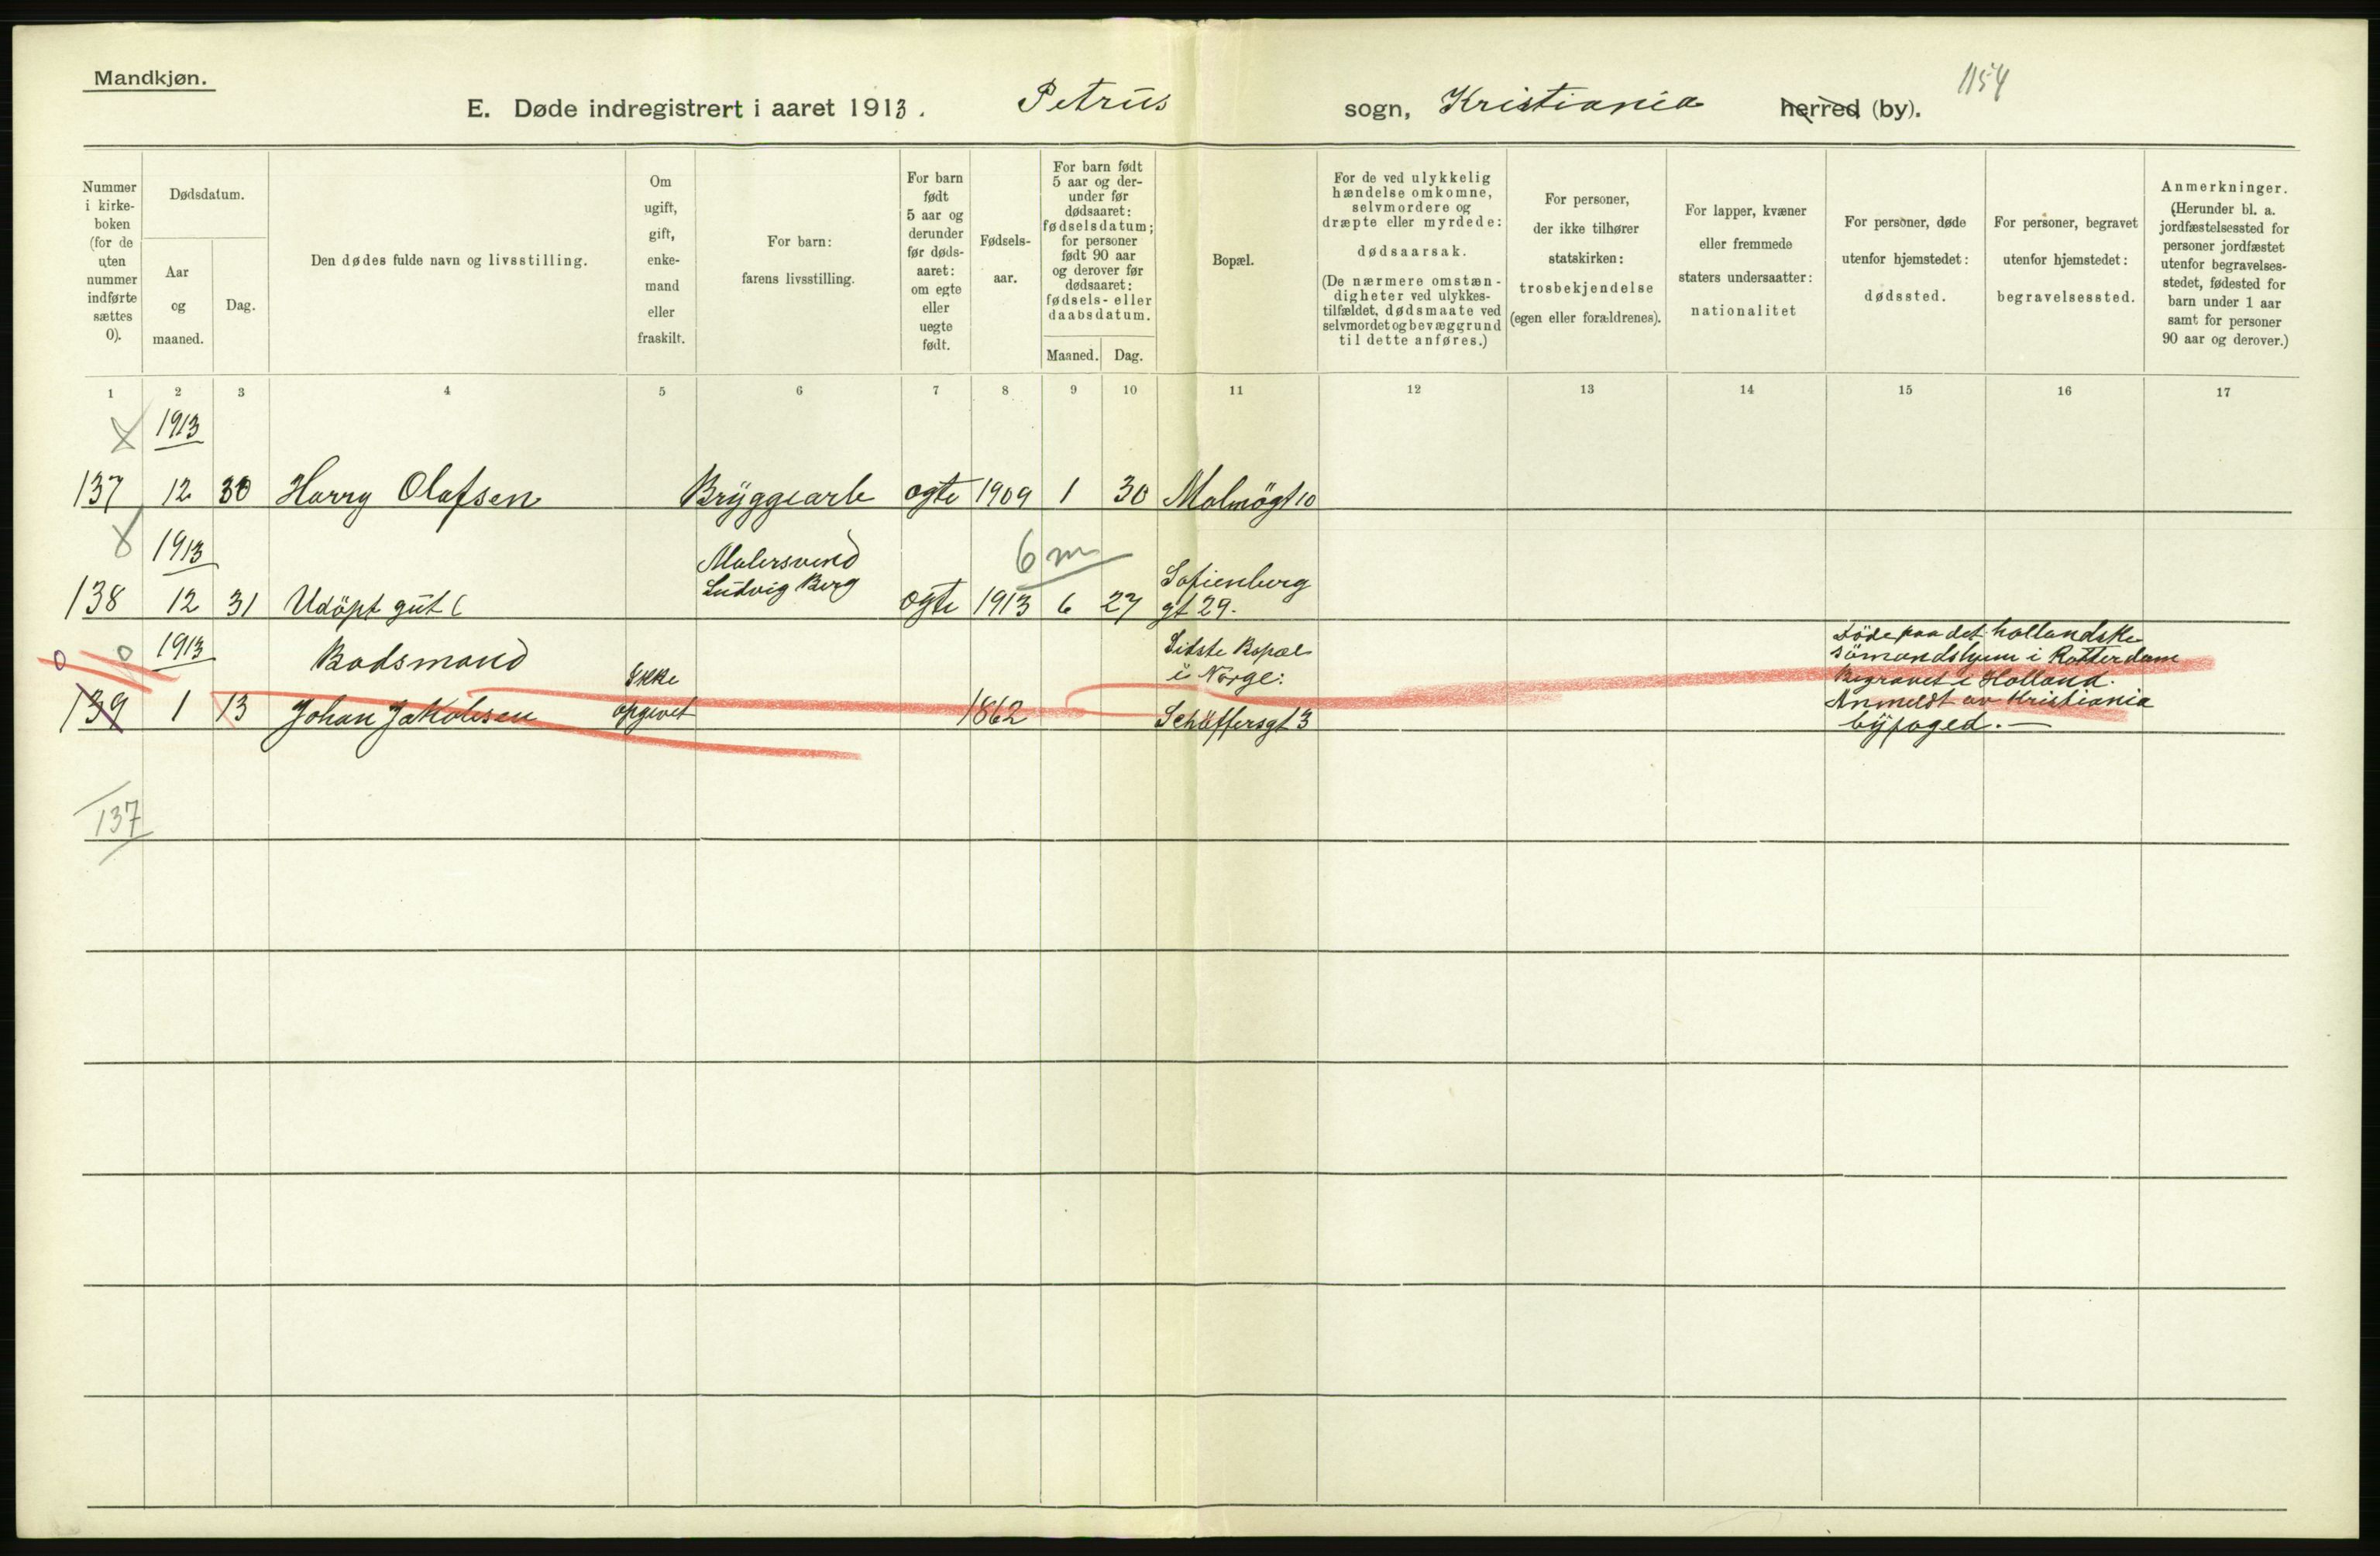 Mandkjøn.
1154
E. Døde indregistrert i aaret 1913. Petrus sogn, Kristiania herred (by).
Nummer
i kirke-
boken
(for de
uten
nummer
indførte
sættes
0).
Dødsdatum.
Aar
og
maaned.
Dag.
Den dødes fulde navn og livsstilling.
Om
ugift,
gift,
enke-
mand
eller
fraskilt.
For barn:
farens livsstilling.
For barn
født
5 aar og
derunder
før døds-
aaret:
om egte
eller
uegte
født.
Fødsels-
aar.
For barn født
5 aar og der-
under før
dødsaaret:
fødselsdatum;
for personer
født 90 aar
og derover før
dødsaaret:
fødsels- eller
daabsdatum.
Maaned. Dag.
Bopæl.
For de ved ulykkelig
hændelse omkomne,
selvmordere og
dræpte eller myrdede:
dødsaarsak.
(De nærmere omstæn-
digheter ved ulykkes-
tilfældet, dødsmaate ved
selvmordet og bevæggrund
til dette anføres.)
For personer,
der ikke tilhører
statskirken:
trosbekjendelse
(egen eller forældrenes).
For lapper, kvæner
eller fremmede
staters undersaatter:
nationalitet
For personer, døde
utenfor hjemstedet:
dødssted.
For personer, begravet
utenfor hjemstedet:
begravelsessted.
Anmerkninger.
(Herunder bl. a.
jordfæstelsessted for
personer jordfæstet
utenfor begravelses-
stedet, fødested for
barn under 1 aar
samt for personer
90 aar og derover.)
1 2 3 4 5 6 7 8 9 10 11 12 13 14 15 16 17
X 1913
137 12 30 Harry Olafsen Bryggearb egte 1909 1 30 Malmögt 10
X 1913 Malersvend 6 m
Ludvig Berg Sofienberg
138 12 31 Udöpt gut egte 1913 6 27 gt 29.
0 0 1913 Badsmand Sidste Bopæl
Ikke i Norge:
139 1 13 Johan Jakobsen opgivet 1862 Schäffersgt 3
Döde paa det hollandske
sömandshjem i Rotterdam
Begravet i Holland.
Anmeldt av Kristiania
byfoged. —
137